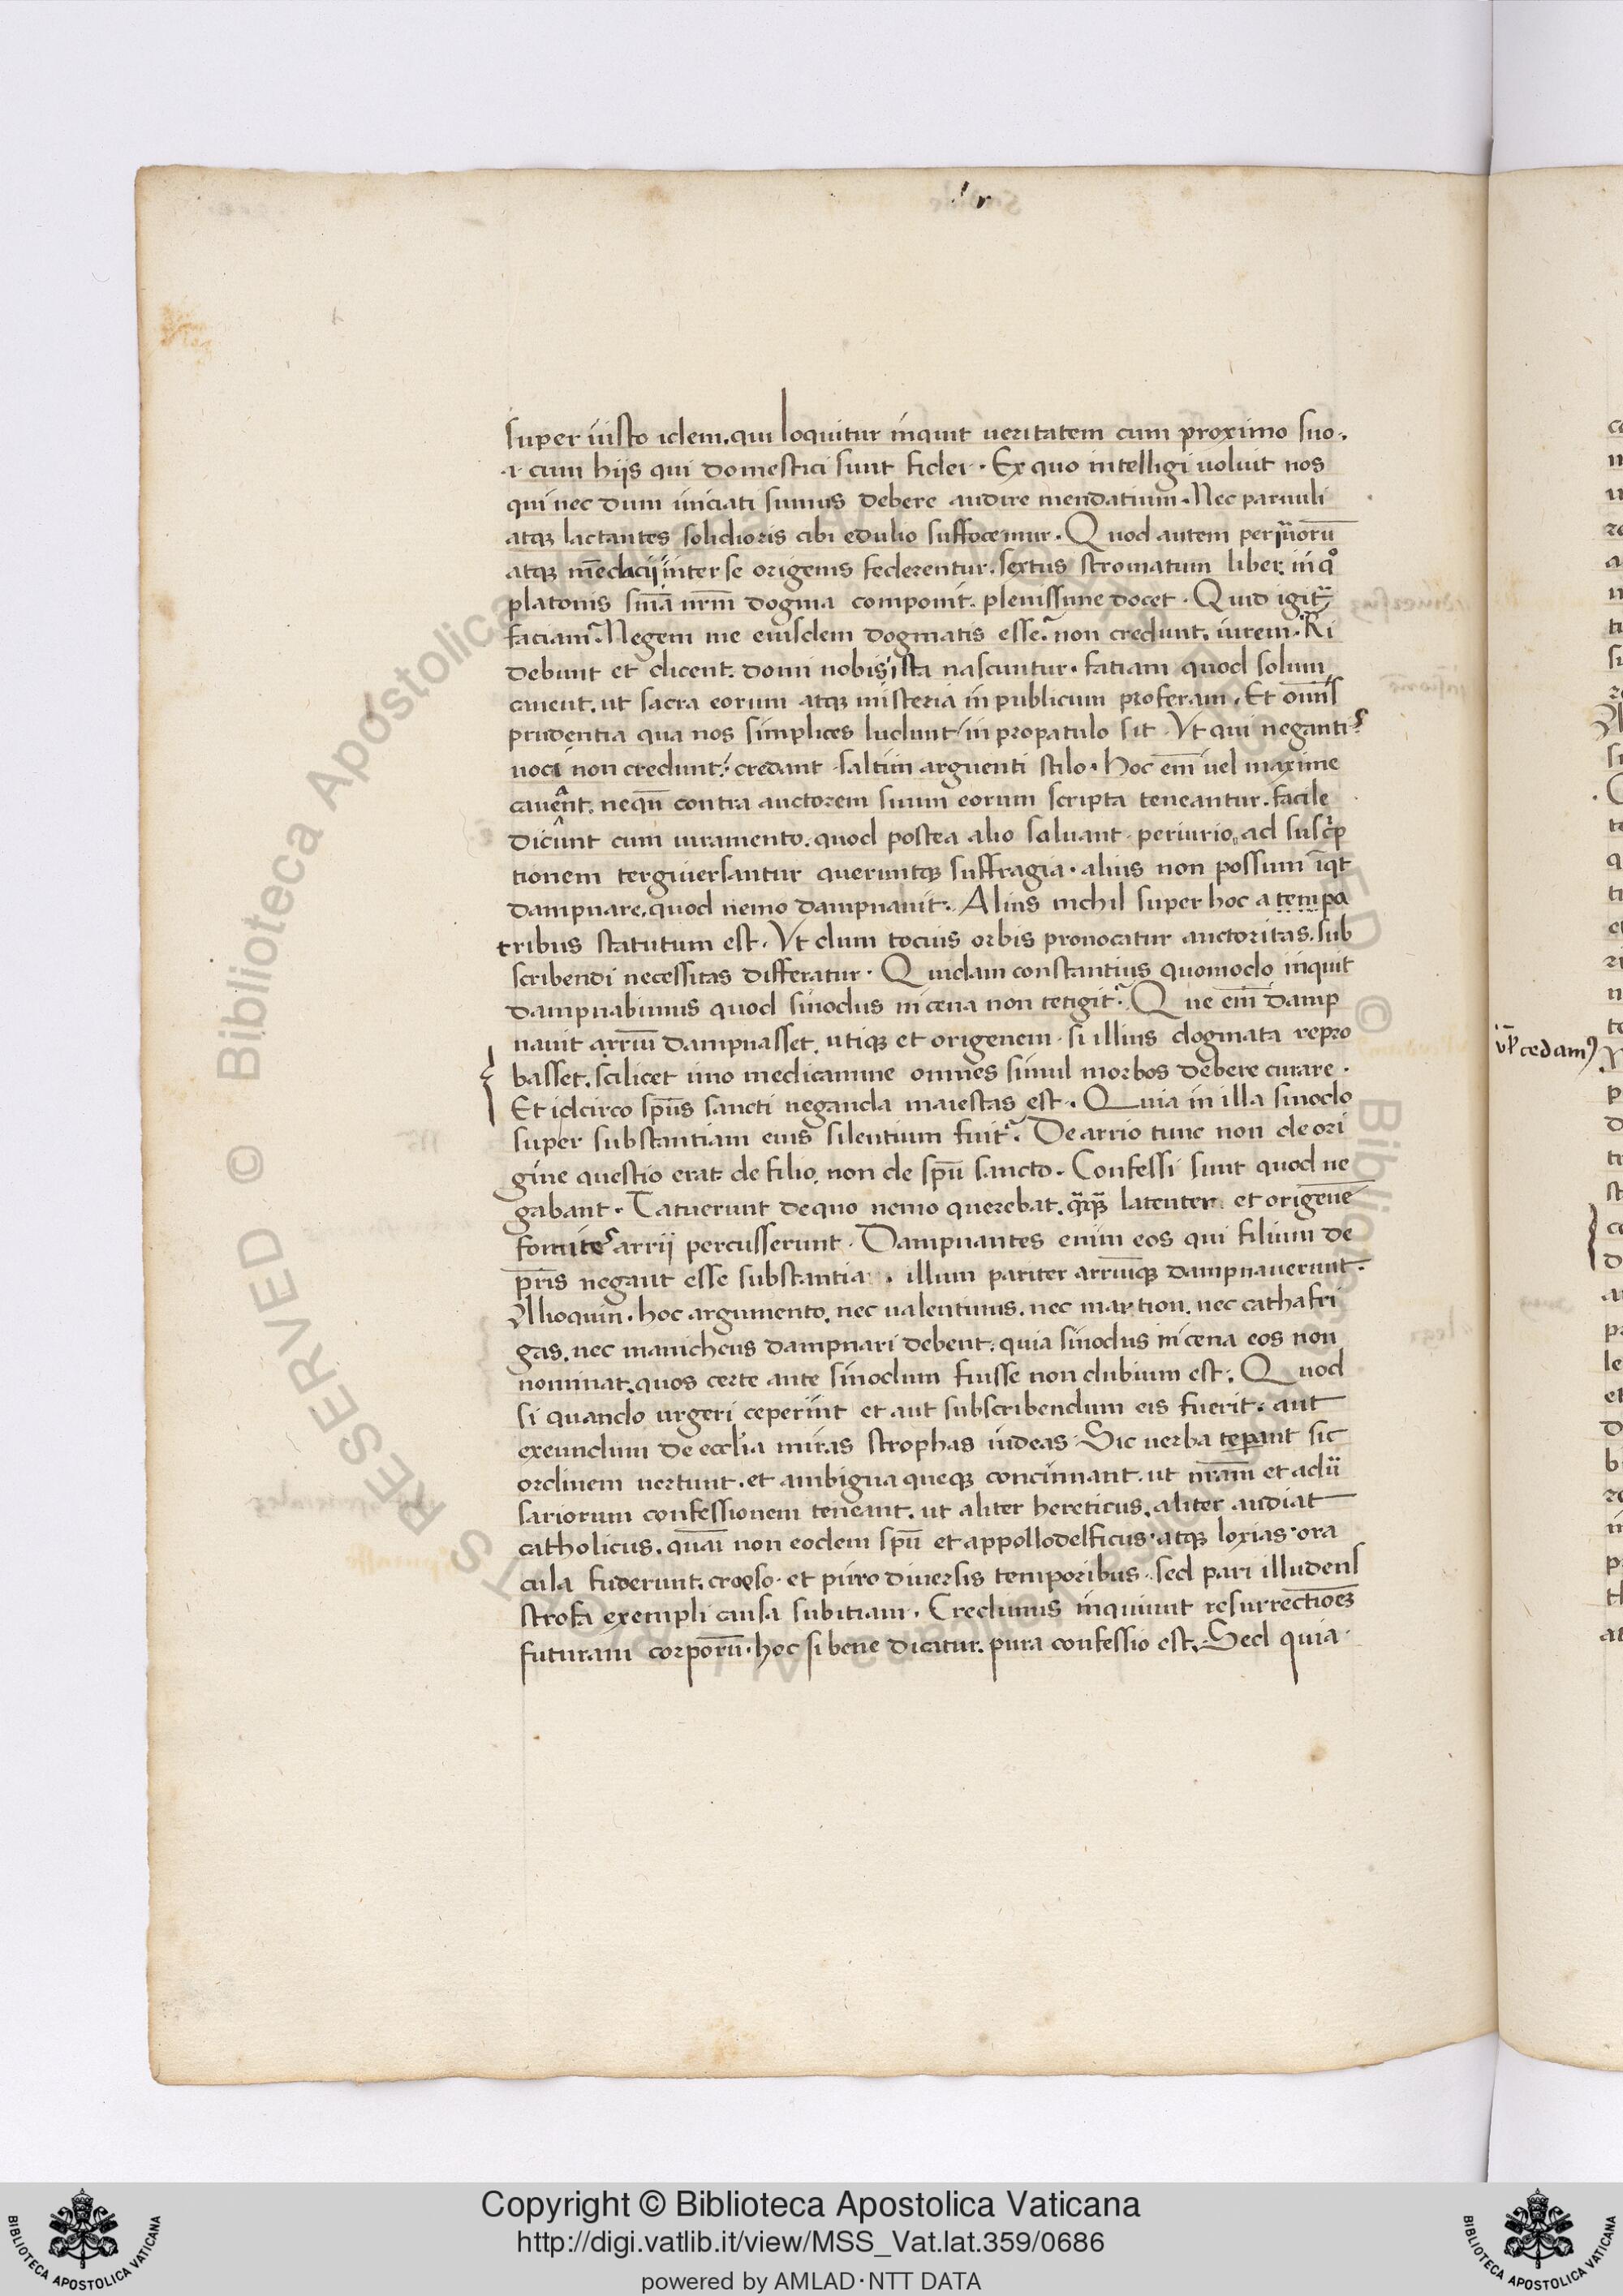 super iusto idem. qui loquitur inquit ueritatem cum proximo suo.
.i. cum hijs qui domestici sunt fidei. Ex quo intelligi uoluit nos
qui nec dum iniciati sumus debere audire mendatium. Nec paruuli
atqꝫ lactantes solidioris cibi edulio suffocemur. Quod autem periuriorū
atqꝫ mēdacij inter se origenis federentur. sextus stromatum liber. in qͦ
platonis sniā nrm̄ dogma componit. plenissime docet. Quid igitr̃
faciam? Negem me eiusdem dogmatis esse? non credunt. iurem. Ri
debunt et dicent. domi nobis ista nascuntur. fatiam quod solum
cauent. ut sacra eorum atqꝫ misteria in publicum proferam. Et om̄is
prudentia qua nos simplices ludunt in propatulo sit. Vt qui neganti
uoci non credunt. credant saltim arguenti stilo. hoc em̄ uel maxime
cauent. nequn̄ contra auctorem suum eorum scripta teneantur. facile
dicunt cum iuramento. quod postea alio saluant periurio. ad suscp̱
tionem tergiuersantur queruntqꝫ suffragia. alius non possum īqt
dampnare. quod nemo dampnauit. Alius nichil super hoc a tempa
tribus statutum est. Vt dum tocius orbis prouocatur auctoritas. sub
scribendi necessitas differatur. Quidam constantius quomodo inquit
dampnabimus quod sinodus nicena non tetigit? Que em̄ damp
nauit arrium dampnasset. utiqꝫ et origenem. si illius dogmata repro
basset. scilicet uno medicamine omnes simul morbos debere curare.
Et idcirco spūs sancti neganda maiestas est. Quia in illa sinodo
super substantiam eius silentium fuit? De arrio tunc non de ori
gine questio erat. de filio. non de spū sancto. Confessi sunt quod ne
gabant. Tatuerunt de quo nemo querebat. qꝗꝫ latenter et origenē
fomite arrij percusserunt. Dampnantes enim eos qui filium de
pr̄is negant esse substantia. illum pariter arriumqꝫ dampnauerunt.
Alioquin. hoc argumento. nec ualentinus. nec martion. nec cathafri
gas. nec manicheus dampnari debent. quia sinodus nicena eos non
nominat. quos certe ante sinodum fuisse non dubium est. Quod
si quando urgeri ceperint et aut subscribendum eis fuerit. aut
exeundum de eccl'ia miras strophas uideas. Sic uerba tepant sic
ordinem uertunt. et ambigua queqꝫ concinnant. ut nr̄am et adū
sariorum confessionem teneant. ut aliter hereticus. aliter audiat
catholicus. quasi non eodem spū et appollo delficus. atqꝫ loxias. ora
cula fuderunt. croeso. et pirro diuersis temporibus. sed pari illudens
strofa exempli causa subitiam. Credimus inquiunt resurrectionē
futuram corporū. hoc si bene dicatur. pura confessio est. Sed quia
cedam
Copyright © Biblioteca Apostolica Vaticana
http://digi.vatlib.it/view/MSS_Vat.lat.359/0686
powered by AMLAD·NTT DATA
BIBLIOTECA APOSTOLICA VATICANA
BIBLIOTECA APOSTOLICA VATICANA